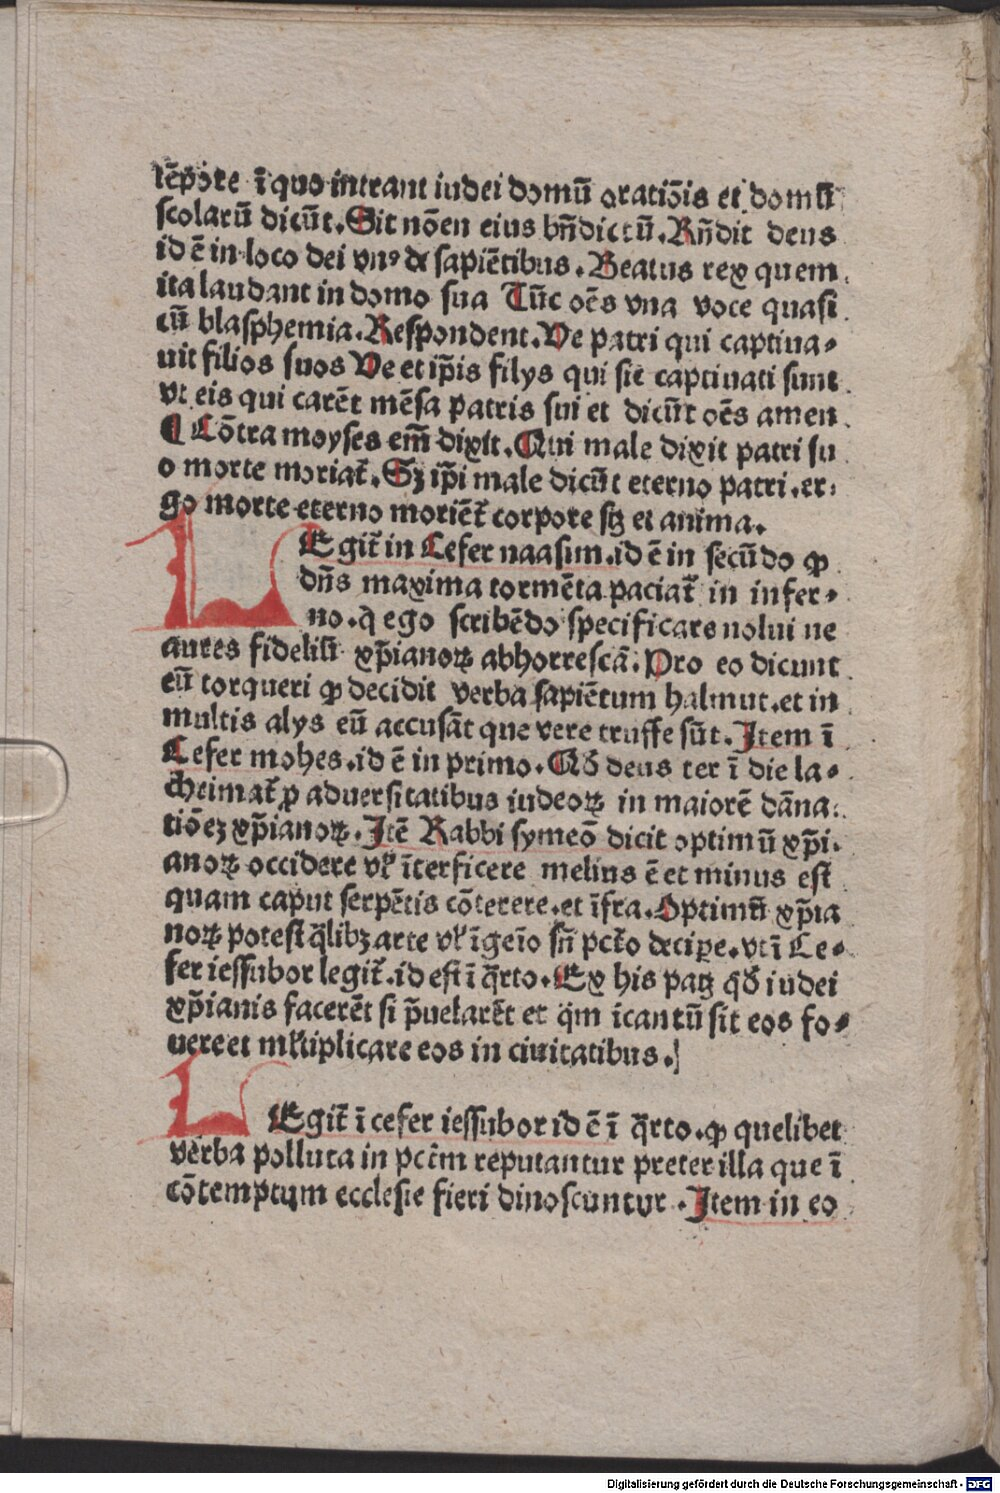 tēpore ī quo intrant iudei domū oratiōis et domū
scolarū dicūt. Sit nōen eius bn̄dictū. Rn̄dit deus
id ē in loco dei vnꝰ de sapiētibus. Beatus rex quem
ita laudant in domo sua Tūc oēs vna voce quasi
cū blasphemia. Respondent. Ve patri qui captiua⸗
uit filios suos Ve et ip̄is filys qui sic captiuati sunt
vt eis qui carēt mēsa patris sui et dicūt oēs amen
¶ Cōtra moyses em̄ dixit. Qui male dixit patri su
o morte moriat᷑. Sꝫ ip̄i male dicūt eterno patri. er⸗
go morte eterno moriēt᷑ corpore sꝫ et anima.
LEgit᷑ in Cefer naasim. id ē in secūdo ꝙ
dn̄s maxima tormēta paciat᷑ in infer⸗
no. q̄ ego scribēdo specificare nolui ne
aures fideliū xp̄ianoꝝ abhorrescā. Pro eo dicunt
eū torqueri ꝙ decidit verba sapiētum halmut. et in
multis alys eū accusāt que vere truffe sūt. Item ī
Cefer mohes. id ē in primo. Qđ deus ter ī die la⸗
cheimat᷑ ꝓ aduersitatibus iudeoꝝ in maiorē dāna⸗
tiōeꝫ xp̄ianoꝝ. Itē Rabbi symeō dicit optimū xp̄i⸗
anoꝝ occidere vl̓ īterficere melius ē et minus est
quam caput serpētis cōterere. et īfra. Optimū xp̄ia
noꝝ potest q̄libꝫ arte vl̓ īgeīo sn̄ pctō decipe. vt ī Ce⸗
fer iessubor legit᷑. id est ī q̄rto. Ex his patꝫ qđ iudei
xp̄ianis facerēt si p̄uelarēt et q̄m īcantū sit eos fo⸗
uere et ml̓tiplicare eos in ciuitatibus.
LEgit᷑ ī cefer iessubor id ē ī q̄rto. ꝙ quelibet
verba polluta in pctm̄ reputantur preter illa que ī
cōtemptum ecclesie fieri dinoscuntur. Item in eo
Digitalisierung gefördert durch die Deutsche Forschungsgemeinschaft - DFG